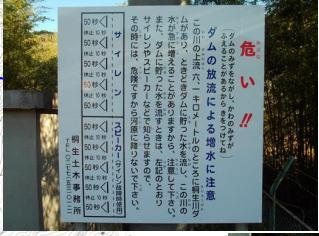 危い!!
ダムのみずをながし、かわのみずが
ふえることがあるからきをつけてね
ダムの放流による増水に注意
この川の上流、六、キロメートルのところに桐生川ダ
ムがあり、ときどきダムに貯った水を流し、この川の
水が急に増えることがありますから、注意して下さい。
また、ダムに貯った水を流すときは、左記のとおり
サイレンやスピーカーなどで知らせますので、
その時には、危険ですから河原に降りないで下さい。
サイレン
50秒
休止10秒
50秒
休止10秒
50秒
休止10秒
50秒
休止10秒
50秒
スピーカー(サイレン故障時使用)
50秒
休止10秒
50秒
休止10秒
50秒
休止10秒
50秒
休止10秒
50秒
桐生土木事務所